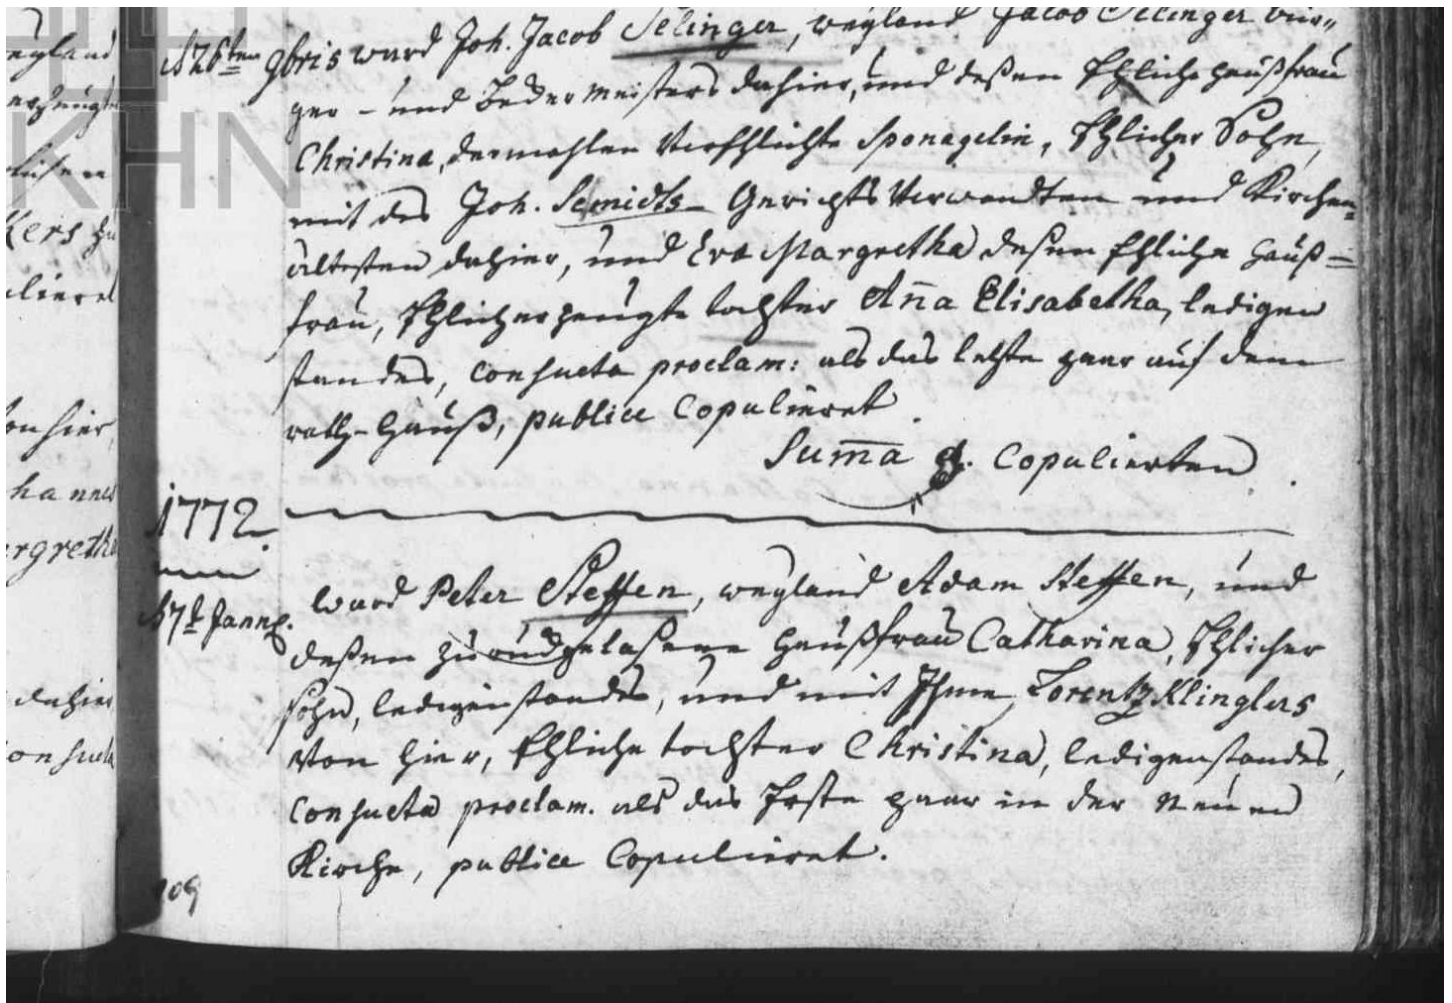 KHN
d 26ten 9bris ward Joh. Jacob Selinger, weyland Jacob Selinger bür-
ger- und Bedermeisters dahier, und deßen Ehliche haußfrau
Christina, dermahlen Verehlichte Sponagelin, Ehlicher Sohn,
mit des Joh. Semidts Gerichts Verwandten und Kirchen-
ältesten dahier, und Eva Margretha deßen Ehliche hauß-
frau, Ehlicherzeugte tochter Aña Elisabetha, ledigen
standes, consueta proclam: als das letzte paar auf dem
rath-hauß, publice Copulieret
Suma Copulierten
1772.
ward Peter Steffen, weyland Adam Steffen, und
d 7t Jann. deßen gelaßene haußfrau Catharina, Ehlicher
sohn, ledigenstandes, und mit Lorentz Klinglers
Von hier, Ehliche tochter Christina, ledigenstandes,
consueta proclam. als das Erste paar in der neuen
Kirche, publice Copulieret.
109
weyland
erzeugte
kers zu
lieret
von hier,
hannes
argretha
dahier
consueta